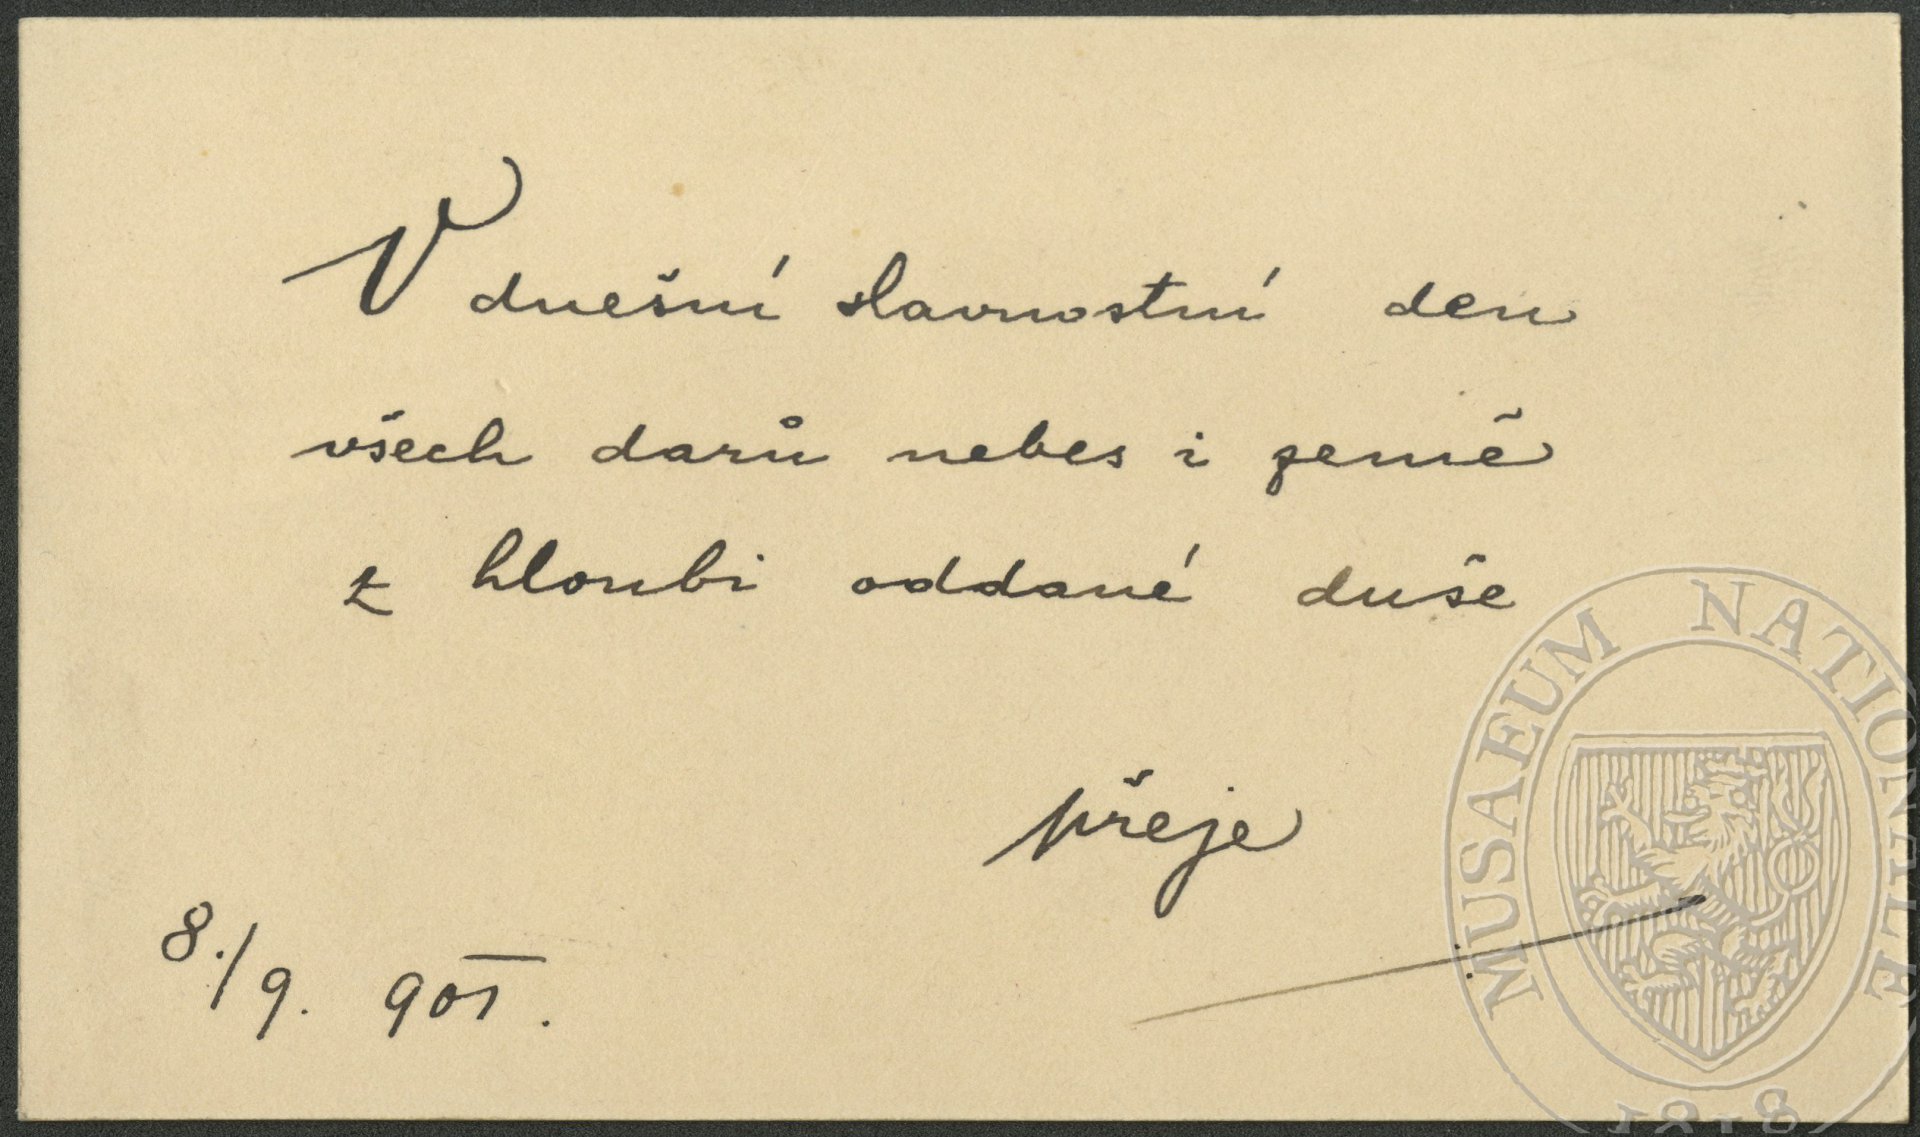 V dnešní slavnostní den
všech darů nebes i země
z hloubi oddané duše
přeje
8./9. 901.
MUSAEUM NATIONALE
1818